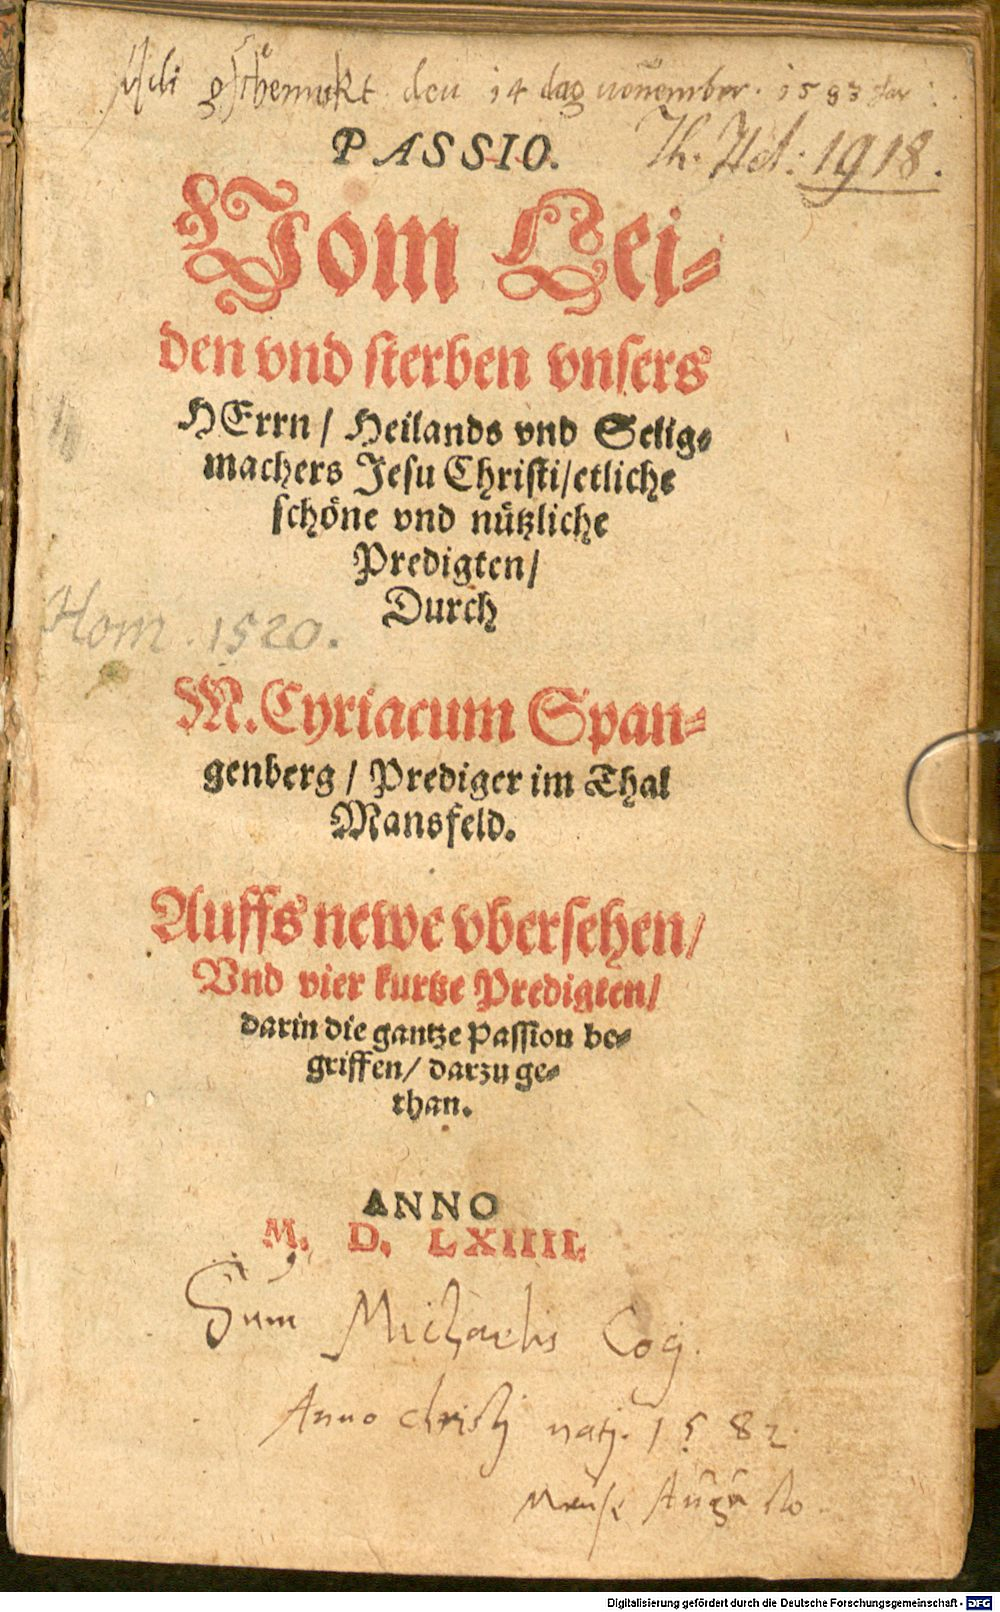 geschenckt den 14 dag november 1583 Jar
PASSIO.
Th. Hd: 1918.
Vom Lei-
den vnd sterben vnsers
HErrn / Heilands vnd Selig-
machers Jesu Christi / etliche
schöne vnd nützliche
Predigten /
Durch
Hom. 1520.
M. Cyriacum Span-
genberg / Prediger im Thal
Mansfeld.
Auffs newe vbersehen /
Vnd vier kurtze Predigten /
darin die gantze Passion be-
griffen / darzu ge-
than.
ANNO
M. D. LXIIII.
Sum Michaelis Cog.
Anno christj natj. 1582
mense Augusto.
Digitalisierung gefördert durch die Deutsche Forschungsgemeinschaft - DFG